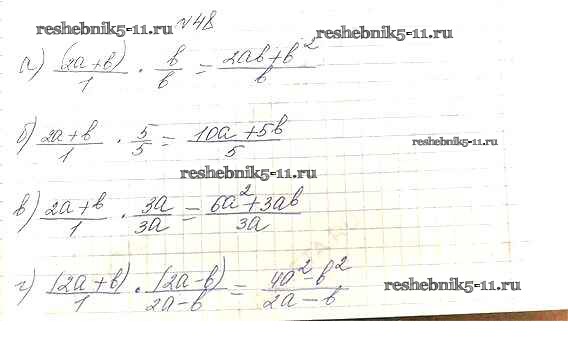 №48
reshebnik5-11.ru reshebnik5-11.ru
а) (2a+b)/1 · b/b = 2ab+b²/b
б) 2a+b/1 · 5/5 = 10a+5b/5 reshebnik5-11.ru
reshebnik5-11.ru
в) 2a+b/1 · 3a/3a = 6a²+3ab/3a
г) (2a+b)/1 · (2a-b)/2a-b = 4a²-b²/2a-b reshebnik5-11.ru